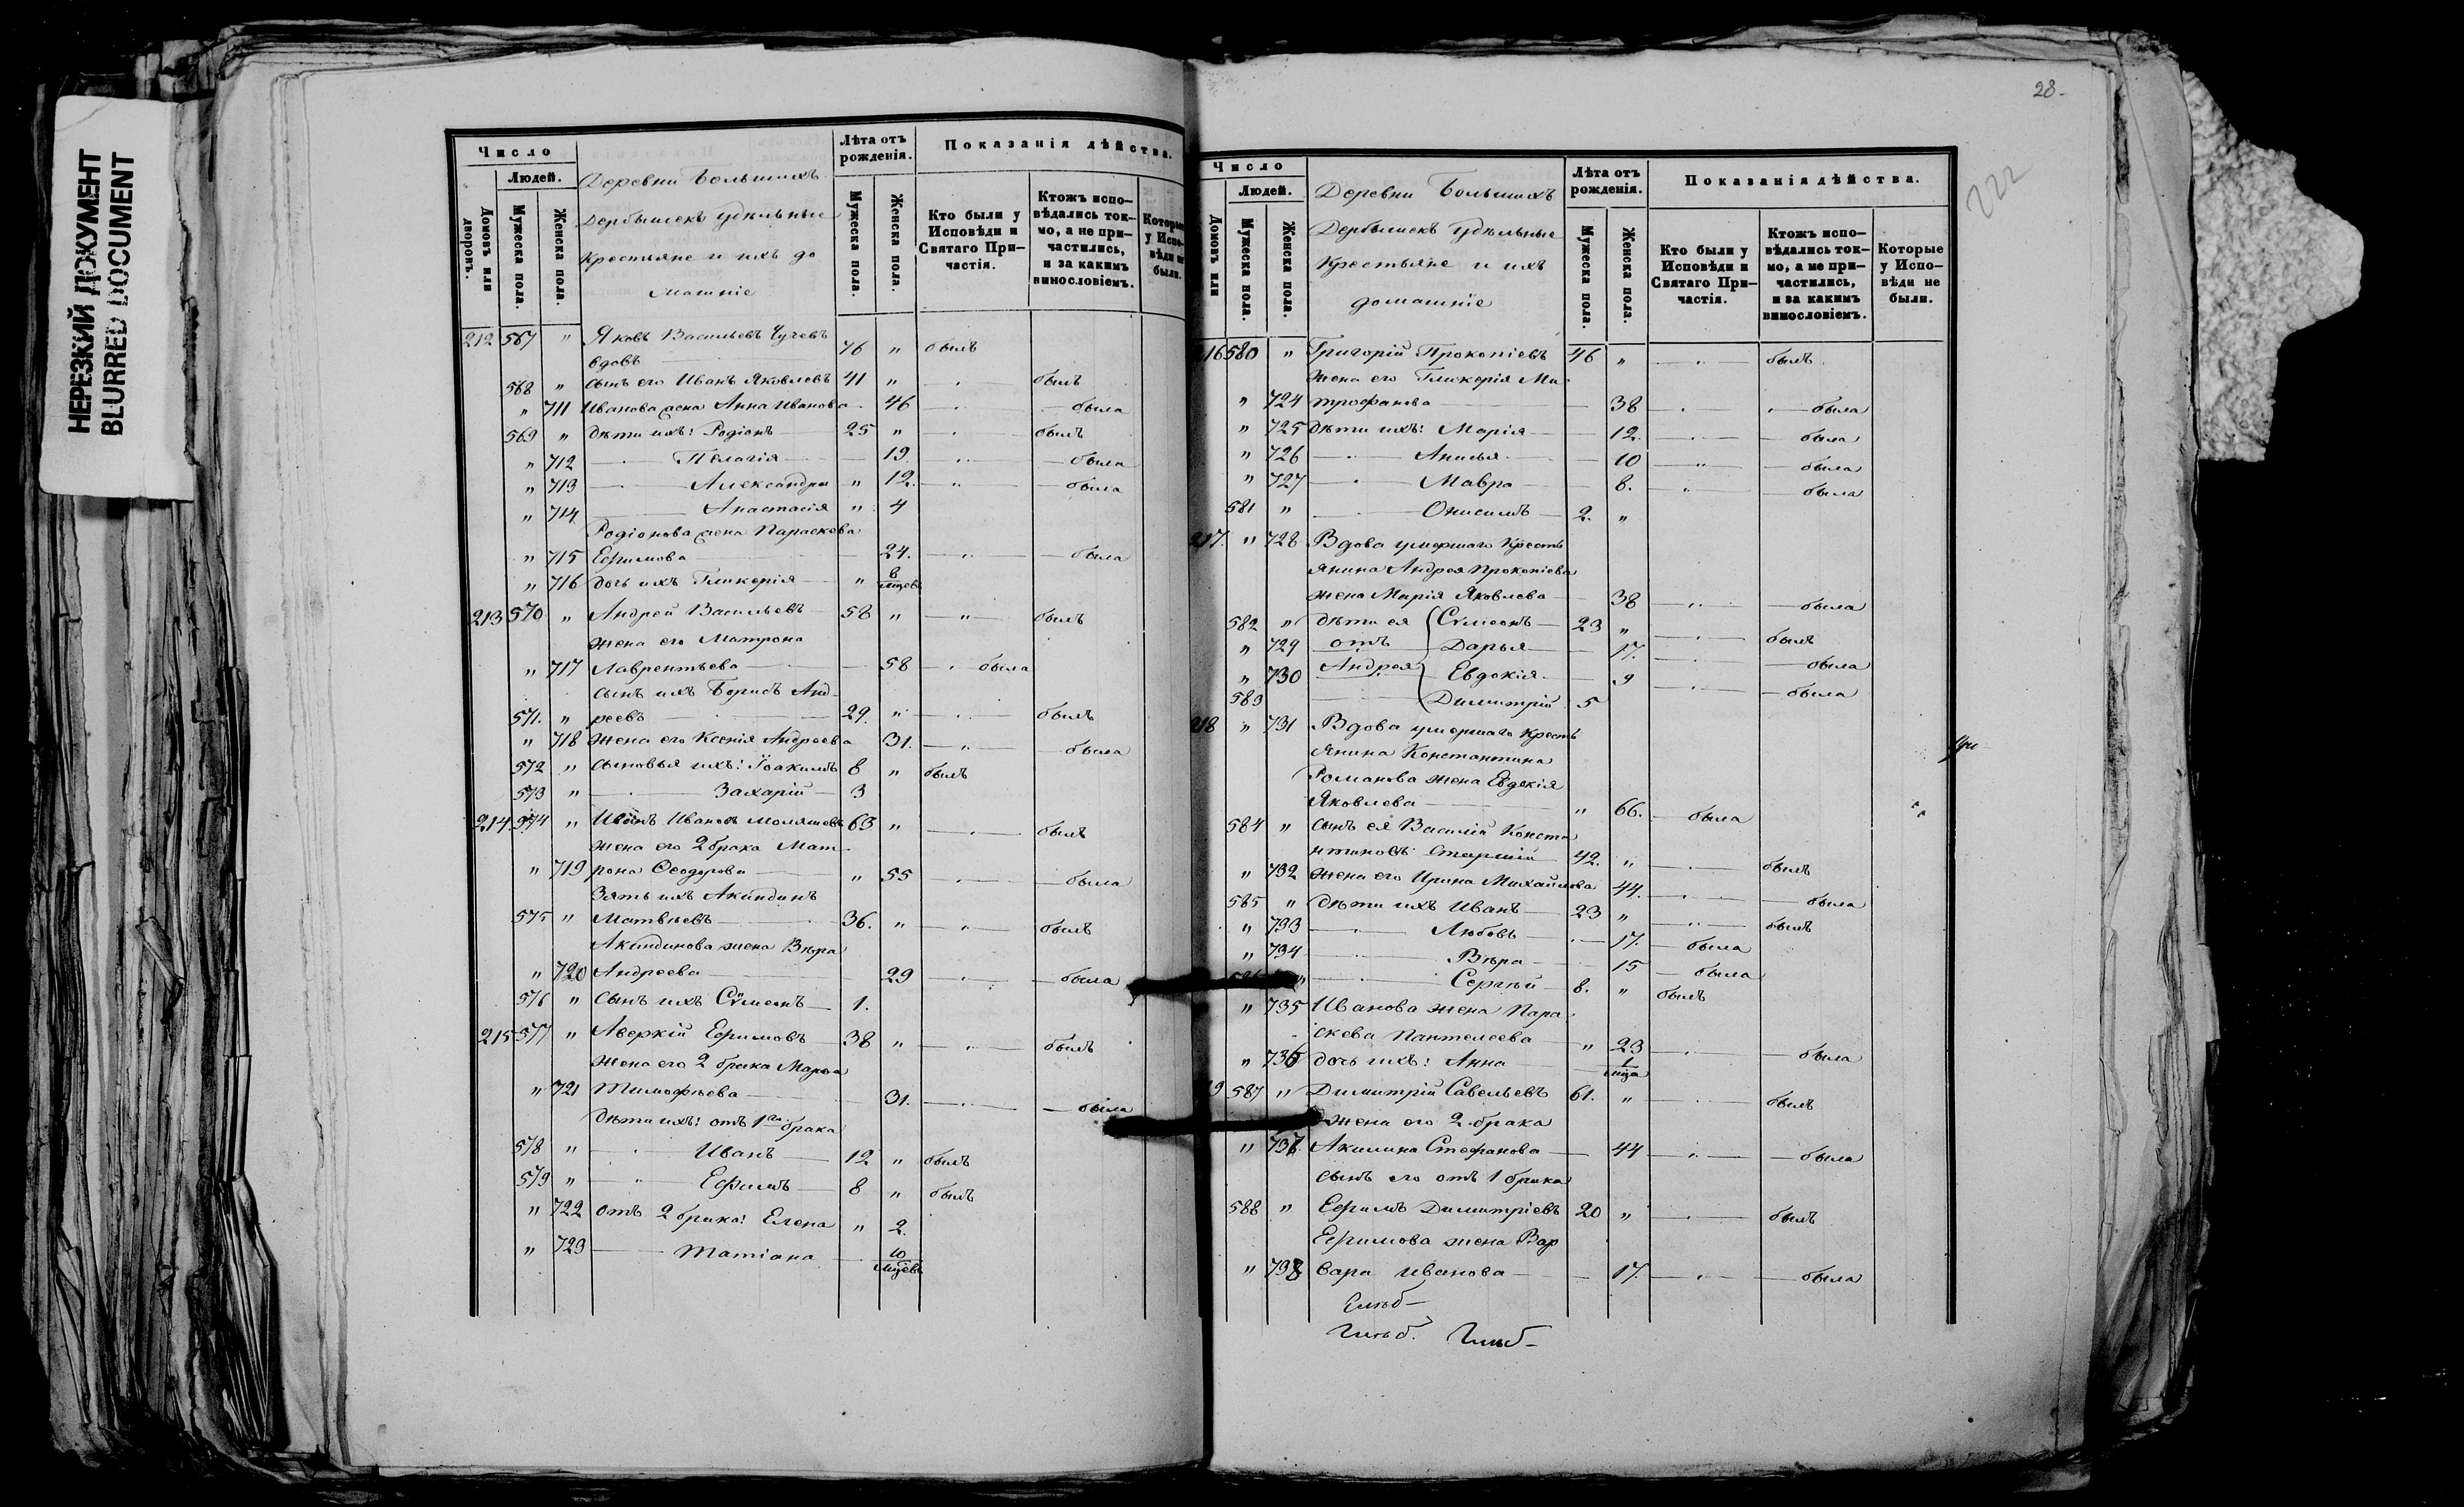 НЕРЕЗКИЙ ДОКУМЕНТ
BLURRED DOCUMENT
Число
Людей.
Домовъ или дворовъ.
Мужеска пола.
Женска пола.
Деревни Большихъ
Дербышекъ удѣльные
Крестьяне и ихъ до
машніе
Лѣта отъ рожденія.
Мужеска пола.
Женска пола.
Показанія дѣйства.
Кто были у Исповѣди и Святаго При-частія.
Ктожъ испо-вѣдались ток-мо, а не при-частились, и за какимъ винословіемъ.
Которые у Испо-вѣди не были.
212 567 " Яковъ Васильевъ
вдовъ 76 " былъ
568 " сынъ его Иванъ Яковлевъ 41 " " былъ
" 711 Иванова жена Анна Иванова 46 " была
569 " дѣти ихъ: Родіонъ 25 " " былъ
" 712 " Пелагія 19 " была
" 713 " Александра " 12. " была
" 714 Анастасія " 4
Родіонова жена Параскева
" 715 Ефимова 24. " была
" 716 дочь ихъ Гликерія " 8 мцевъ
213 570 " Андрей Васильевъ 58 " " былъ
жена его Матрона
" 717 Лаврентьева 58 " была
сынъ ихъ Борисъ Анд-
571. " реевъ 29. " " былъ
" 718 жена его Ксенія Андреева 31. " была
572 " сыновья ихъ: Іоакимъ 8 " былъ
573 " " Захарій 3
214. 574 " Иванъ Ивановъ 63 " " былъ
жена его 2 брака Мат-
" 719 рона Ѳеодорова " 55 " была
Зять ихъ Акиндинъ
575 " Матвѣевъ 36. " " былъ
Акиндинова жена Вѣра
" 720 Андреева 29 " была
576 " сынъ ихъ Сѵмеонъ 1.
215 577 " Аверкій Ефимовъ 38 " " былъ
жена его 2 брака Марѳа
" 721 Тимофѣева 31. " была
дѣти ихъ: отъ 1го брака
578 " " Иванъ 12 " былъ
579 " " Ефимъ 8 " былъ
" 722 отъ 2 брака: Елена " 2.
" 723 Татіана 10 мцевъ
28.
222
Число
Людей.
Домовъ или
Мужеска пола.
Женска пола.
Деревни Большихъ
Дербышекъ Удѣльные
Крестьяне и ихъ
домашніе
Лѣта отъ рожденія.
Мужеска пола.
Женска пола.
Показанія дѣйства.
Кто были у Исповѣди и Святаго При-частія.
Ктожъ испо-вѣдались ток-мо, а не при-частились, и за какимъ винословіемъ.
Которые у Испо-вѣди не были.
216 580 " Григорій Прокопіевъ 46 " " былъ
жена его Гликерія Ми-
" 724 трофанова 38 " была
" 725 дѣти ихъ: Марія 12. " была
" 726 " Анисья 10 " была
" 727 " Мавра 8. " была
581 " Онисимъ 2. "
217. " 728 Вдова умершаго Кресть
янина Андрея Прокопіева
жена Марія Яковлева 38 " была
582 " дѣти ея Сѵмеонъ 23 " " былъ
" 729 отъ Дарья 17. " была
" 730 Андрея Евдокія 9 " была
583 Димитрій 5
218 " 731 Вдова умершаго Кресть
янина Константина
Романова жена Евдокія
Яковлева " 66. была
584 " сынъ ея Василій Конста
нтиновъ Старшій 42. " " былъ
" 732 жена его Ирина Михайлова 44. " была
585 " дѣти ихъ Иванъ 23 " " былъ
" 733 " Любовь 17. была
" 734 Вѣра 15 была
586 " Сергѣй 8. " былъ
" 735 Иванова жена Пара
скева Пантелеева " 23 " была
" 736 дочь ихъ: Анна 1 мца
19 587 " Димитрій Савельевъ 61. " " былъ
жена его 2 брака
" 737 Акилина Стефанова 44 " была
сынъ его отъ 1 брака
588 " Ефимъ Димитріевъ 20 " " былъ
Ефимова жена Вар
" 738 вара Иванова 17. " была